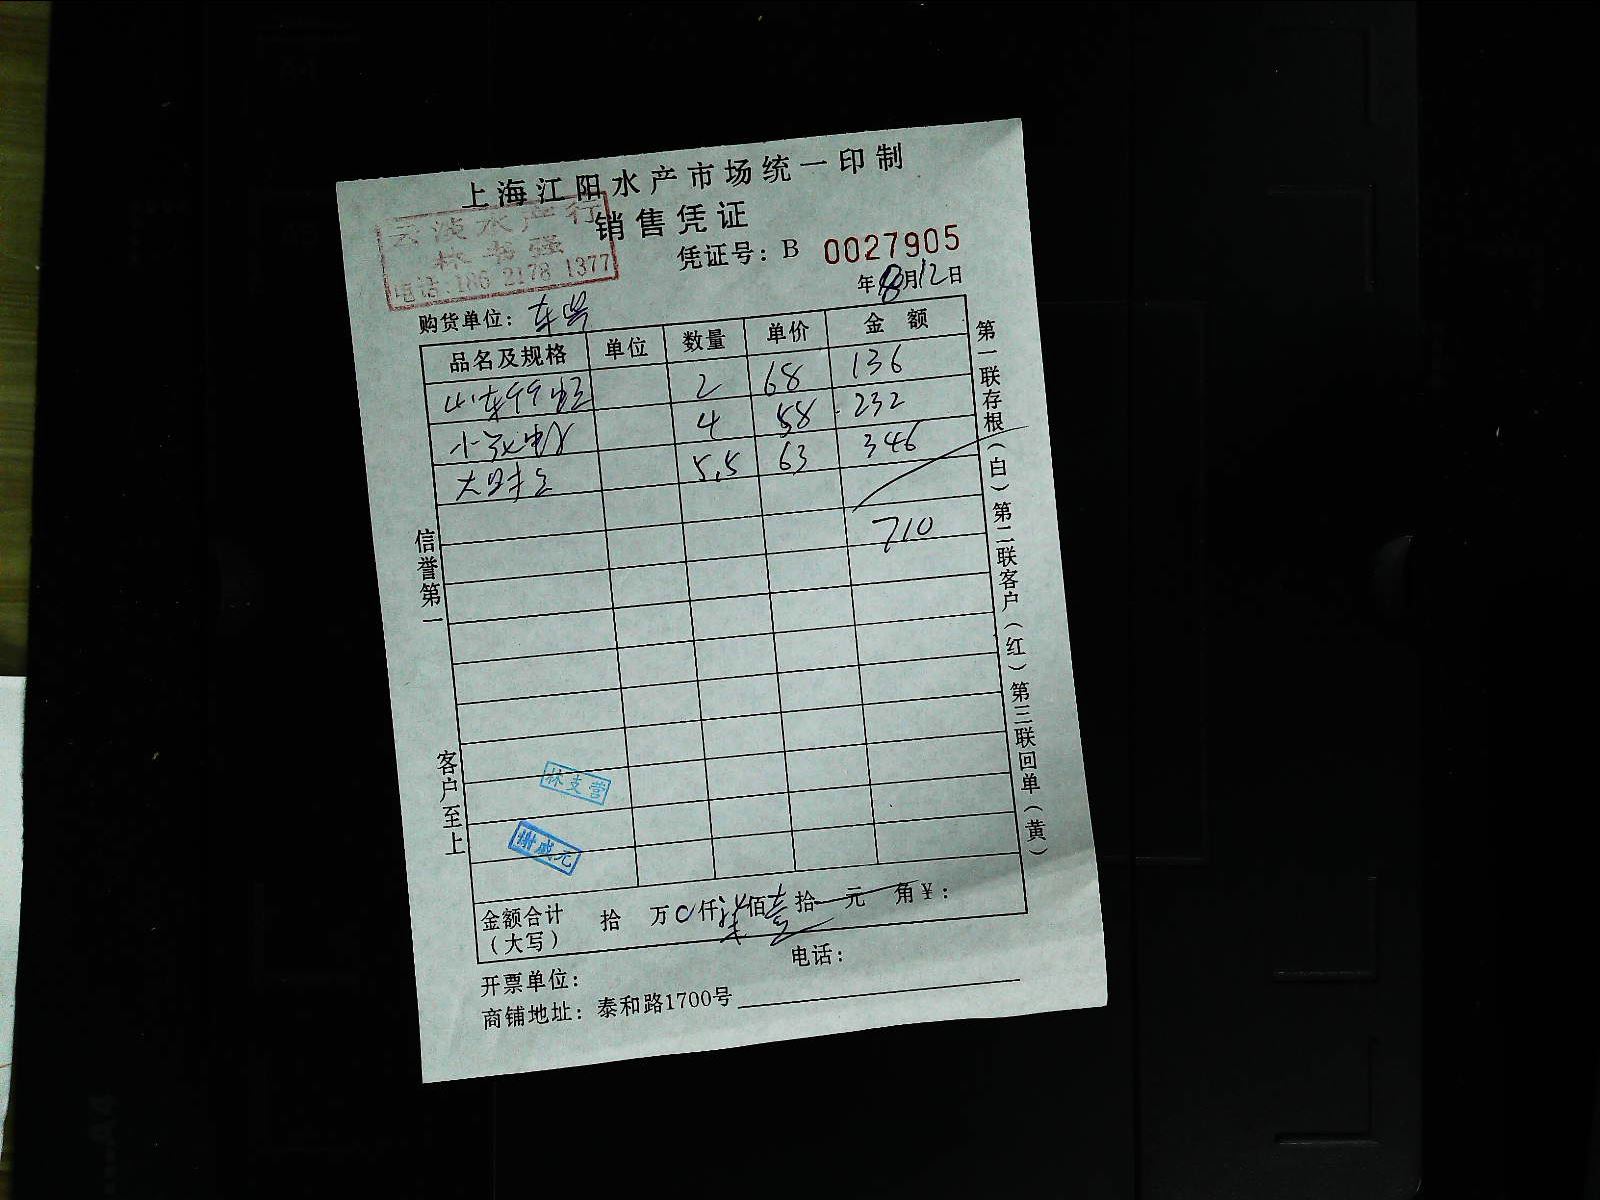 上海江阳水产市场统一印制
销售凭证
水产行
电话:186 2178 1377
凭证号: B 0027905
年8月12日
购货单位:
品名及规格 单位 数量 单价 金额
山东 2 68 136
小 4 58 232
大 5.5 63 346
710
信誉第一
客户至上
第一联存根(白)第二联客户(红)第三联回单(黄)
林支营
谢成元
金额合计(大写) 拾 万0仟柒佰壹拾 元 角¥:
开票单位: 电话:
商铺地址: 泰和路1700号